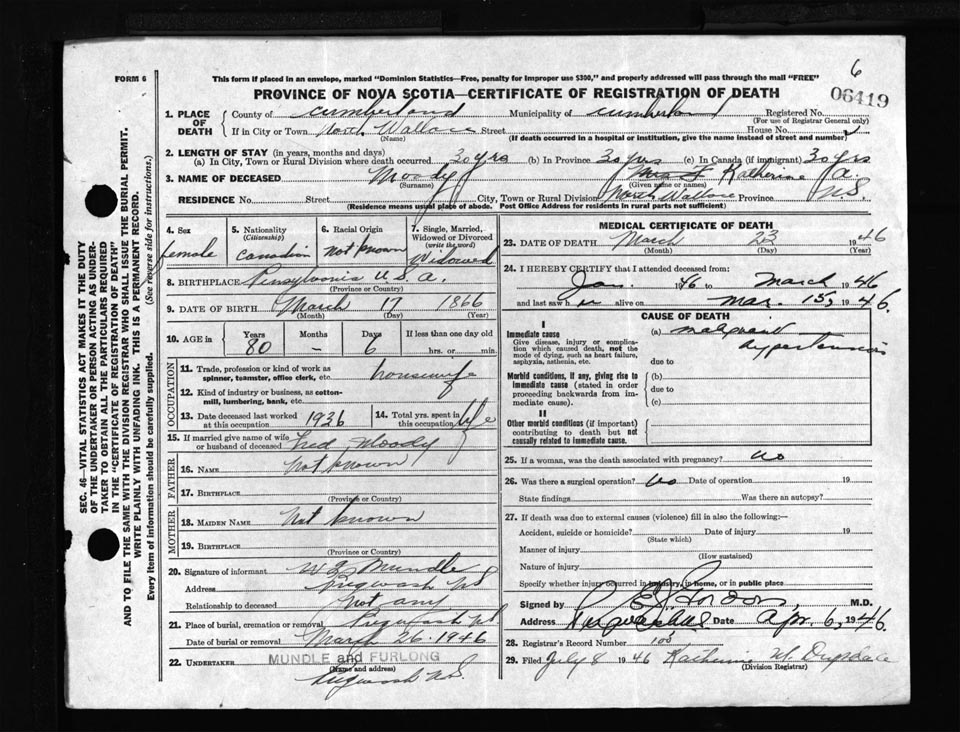 FORM 6
This form if placed in an envelope, marked "Dominion Statistics—Free, penalty for improper use $300," and properly addressed will pass through the mail "FREE"
6
PROVINCE OF NOVA SCOTIA—CERTIFICATE OF REGISTRATION OF DEATH
06419
1. PLACE OF DEATH
County of Cumberland Municipality of Cumberland Registered No.
(For use of Registrar General only)
If in City or Town North Wallace Street House No.
(Name) (If death occurred in a hospital or institution, give the name instead of street and number)
2. LENGTH OF STAY (in years, months and days)
(a) In City, Town or Rural Division where death occurred 30 yrs (b) In Province 30 yrs (c) In Canada (if immigrant) 30 yrs
3. NAME OF DECEASED Moody Katherine A.
(Surname) (Given name or names)
RESIDENCE No. Street City, Town or Rural Division North Wallace Province N.S.
(Residence means usual place of abode. Post Office Address for residents in rural parts not sufficient)
4. Sex female
5. Nationality (Citizenship) Canadian
6. Racial Origin not known
7. Single, Married, Widowed or Divorced (write the word) Widowed
8. BIRTHPLACE Pensylvania U.S.A.
(Province or Country)
9. DATE OF BIRTH March 17 1866
(Month) (Day) (Year)
10. AGE in Years 80 Months – Days 6 If less than one day old hrs. or min.
OCCUPATION
11. Trade, profession or kind of work as spinner, teamster, office clerk, etc. housewife
12. Kind of industry or business, as cotton-mill, lumbering, bank, etc.
13. Date deceased last worked at this occupation 1936
14. Total yrs. spent in this occupation life
15. If married give name of wife or husband of deceased Fred Moody
FATHER
16. NAME Not known
17. BIRTHPLACE
(Province or Country)
MOTHER
18. MAIDEN NAME Not known
19. BIRTHPLACE
(Province or Country)
20. Signature of informant Mundle
Address Pugwash NS
Relationship to deceased Not any
21. Place of burial, cremation or removal Pugwash NS
Date of burial or removal March 26. 1946
22. UNDERTAKER MUNDLE and FURLONG
(Name and address)
Pugwash N.S.
MEDICAL CERTIFICATE OF DEATH
23. DATE OF DEATH March 23 1946
(Month) (Day) (Year)
24. I HEREBY CERTIFY that I attended deceased from:
Jan. 1946 to March 1946
and last saw her alive on Mar. 15, 1946.
CAUSE OF DEATH
I
Immediate cause
Give disease, injury or complication which caused death, not the mode of dying, such as heart failure, asphyxia, asthenia, etc.
(a) malignant hypertension
due to
Morbid conditions, if any, giving rise to immediate cause (stated in order proceeding backwards from immediate cause).
(b)
due to
(c)
II
Other morbid conditions (if important) contributing to death but not causally related to immediate cause.
25. If a woman, was the death associated with pregnancy? no
26. Was there a surgical operation? no Date of operation 19
State findings Was there an autopsy?
27. If death was due to external causes (violence) fill in also the following:—
Accident, suicide or homicide? Date of injury 19
(State which)
Manner of injury
(How sustained)
Nature of injury
Specify whether injury occurred in industry, in home, or in public place
Signed by M.D.
Address Date Apr. 6, 1946.
28. Registrar's Record Number 105
29. Filed July 8 1946 Katherine M. Drysdale
(Division Registrar)
SEC. 46—VITAL STATISTICS ACT MAKES IT THE DUTY
OF THE UNDERTAKER OR PERSON ACTING AS UNDER-
TAKER TO OBTAIN ALL THE PARTICULARS REQUIRED
IN THE "CERTIFICATE OF REGISTRATION OF DEATH"
AND TO FILE THE SAME WITH THE DIVISION REGISTRAR WHO SHALL ISSUE THE BURIAL PERMIT.
WRITE PLAINLY WITH UNFADING INK. THIS IS A PERMANENT RECORD.
Every item of information should be carefully supplied. (See reverse side for instructions.)